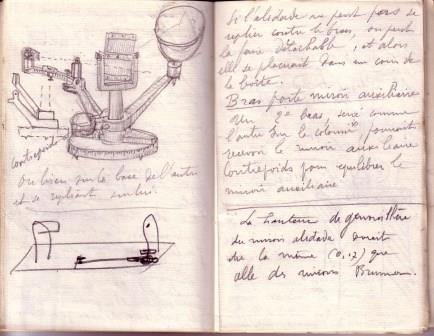 contrepoids
Ou bien sur la base de l'autre
et se repliant sur lui.
Si l'alidade ne peut pas se
replier contre le bras, on peut
la faire détachable, et alors
elle se placerait dans un coin de
la boîte.
Bras porte miroir auxiliaire
Un 2e bras, serré comme
l'autre sur la colonne, pourrait
recevoir le miroir auxiliaire
Contrepoids pour équilibrer le
miroir auxiliaire
La hauteur de
du miroir alidade serait
de la même (0,17) que
celle des miroirs Brunner.